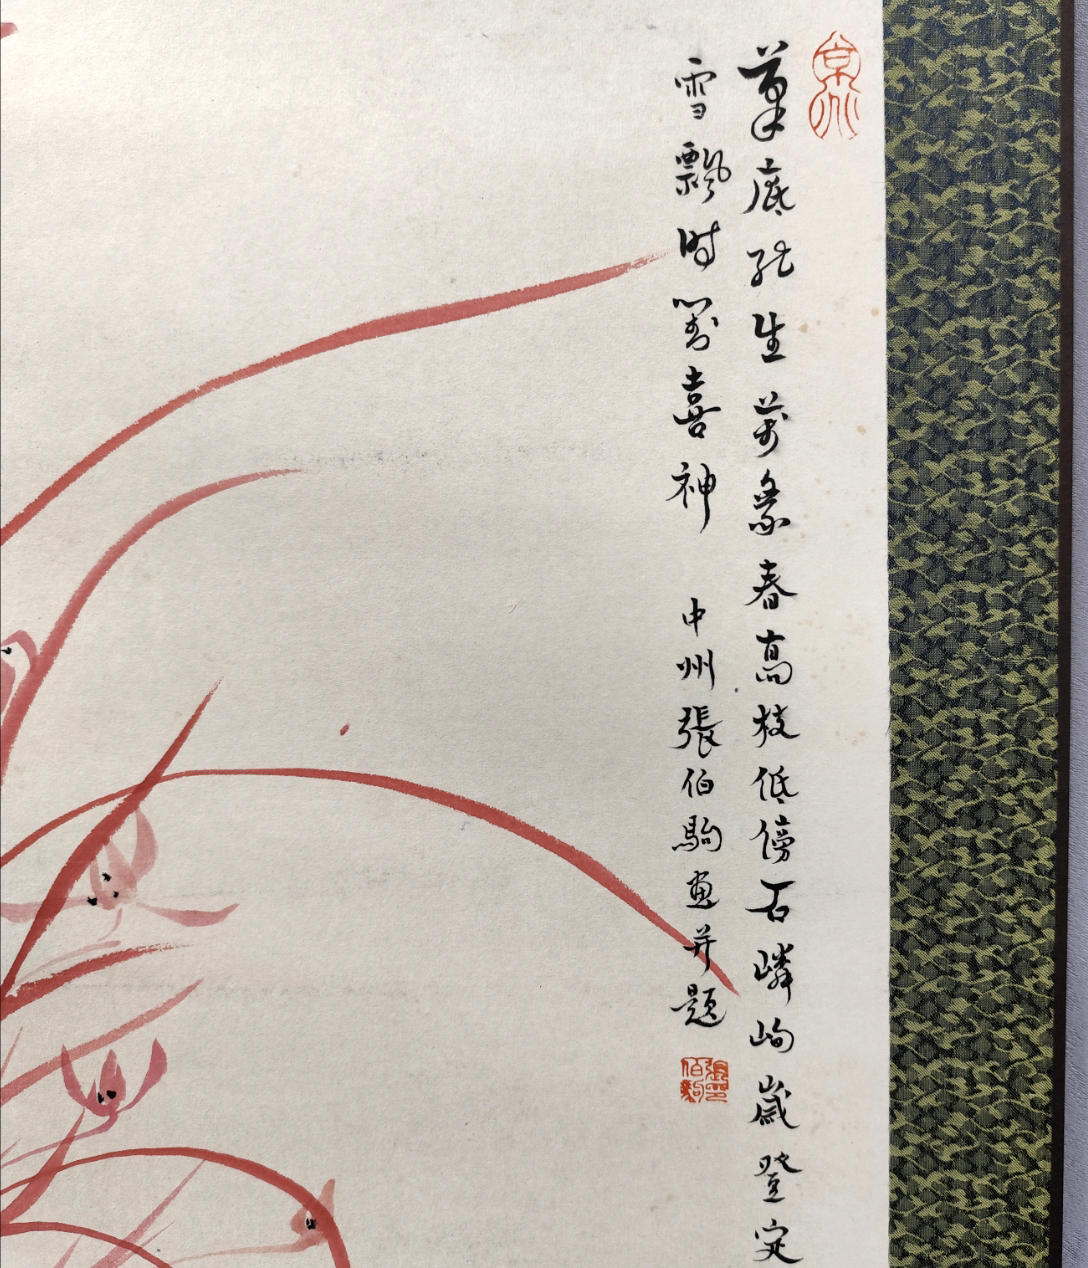 京兆
筆底能生萬象春高枝低傍石嶙峋歲登定
雪飄时對喜神 中州張伯駒畫并題
張印伯駒